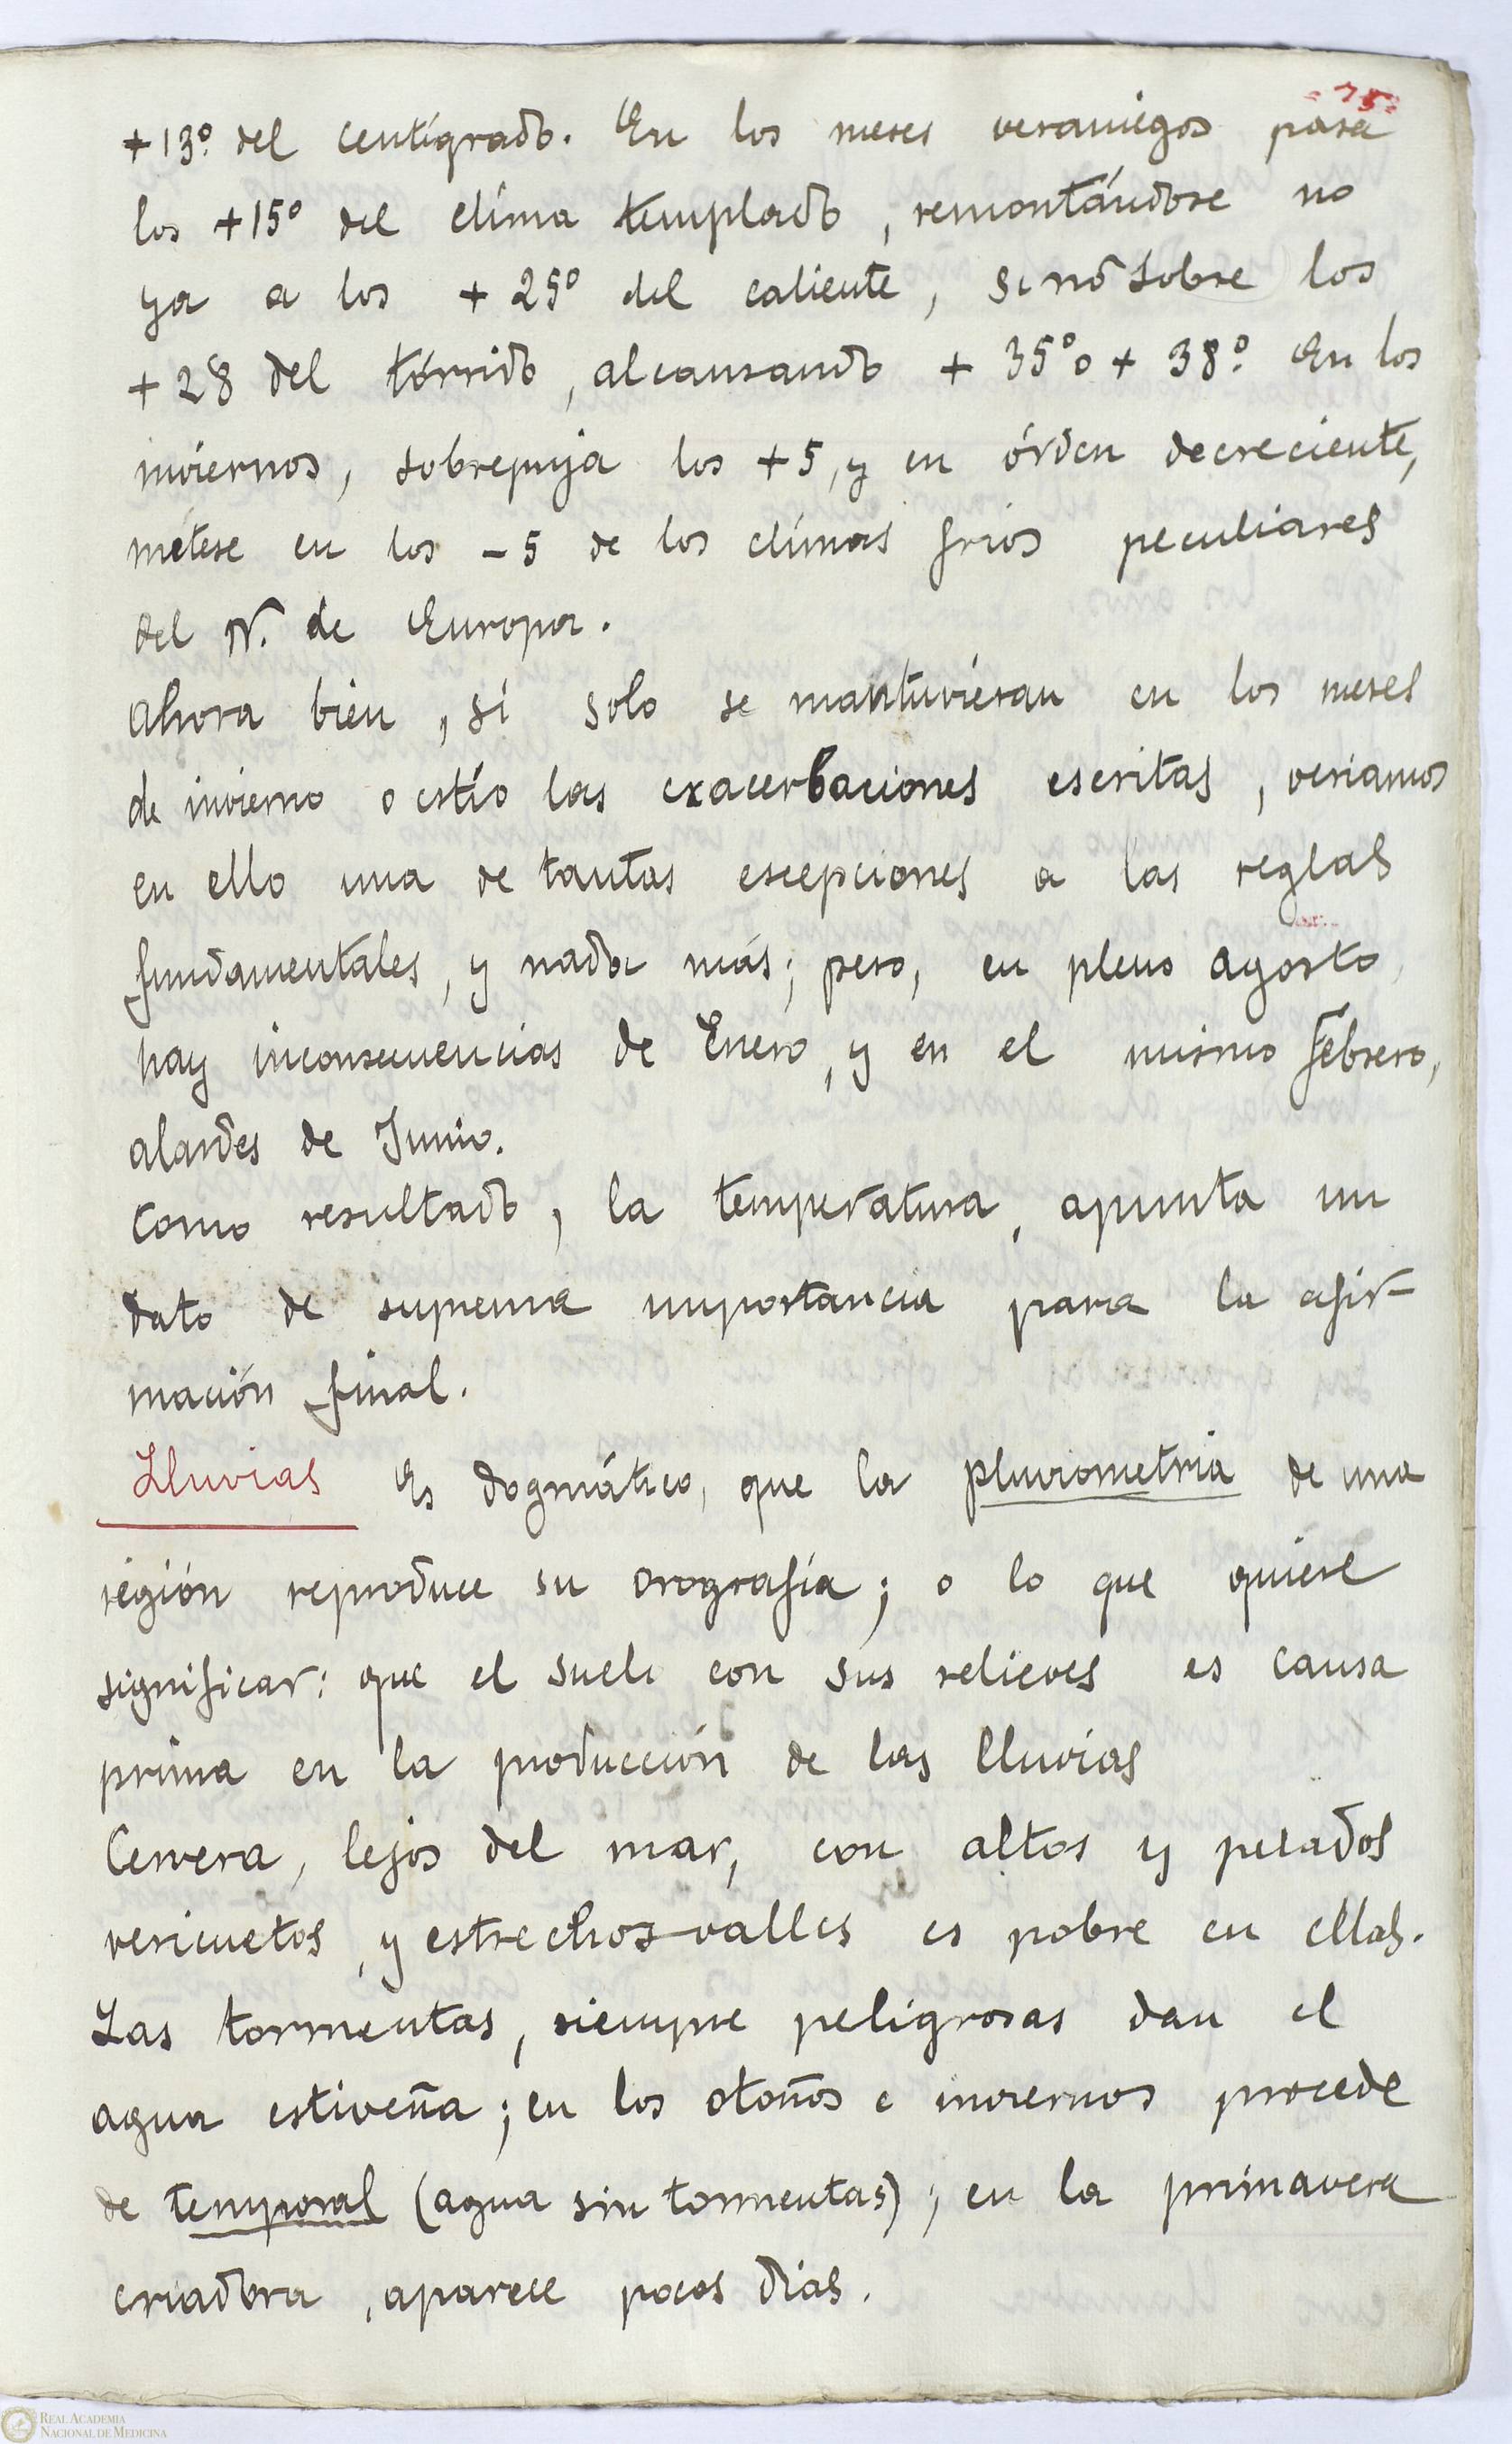 75
+13º. del centígrado. En los meses veraniegos pasa
los +15º del clíma templado, remontándose no
ya a los +25º del caliente, sinó sobre los
+28 del tórrido, alcanzando + 35º o + 38º. En los
inviernos, sobrepuja los +5, y en órden decreciente,
métese en los -5 de los clímas frios peculiares
del N. de Europa.
Ahora bien, sí solo se mantuvieran en los meses
de invierno o estío las exacerbaciones escritas, veriamos
en ello una de tantas escepciones a las reglas
fundamentales, y nada más; pero, en pleno agosto
hay inconsecuencias de Enero, y en el mismo Febrero,
alardes de Junio.
Como resultado, la temperatura, apunta un
dato de suprema importancia para la afir-
mación final.
Lluvias Es dogmático, que la pluviometria de una
región reproduce su orografía; o lo que quiere
significar: que el suelo con sus relieves es causa
prima en la producción de las lluvias
Cervera, lejos del mar, con altos y pelados
vericuetos, y estrechos valles es pobre en ellas.
Las tormentas, siempre peligrosas dan el
agua estiveña; en los otoños e inviernos procede
de temporal (agua sin tormentas); en la primavera
criadora, aparece pocos días.
REAL ACADEMIA
NACIONAL DE MEDICINA